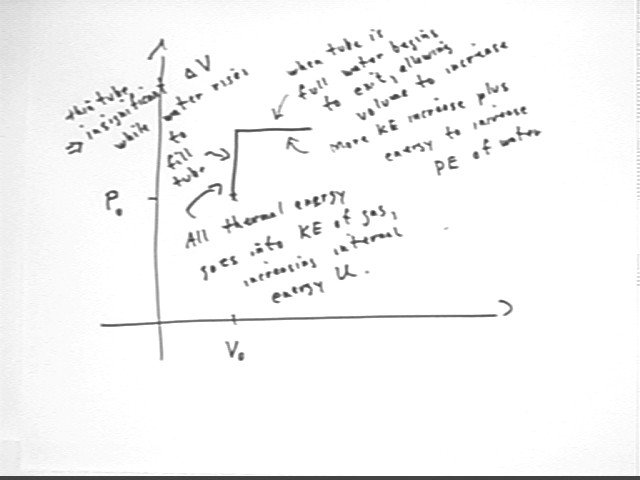 thin tube
⇒ insignificant ΔV
while water rises
to
fill
tube
when tube is
full water begins
to exit, allowing
volume to increase
More KE increase plus
energy to increase
PE of water
P₀
All thermal energy
goes into KE of gas,
increasing internal
energy U.
V₀